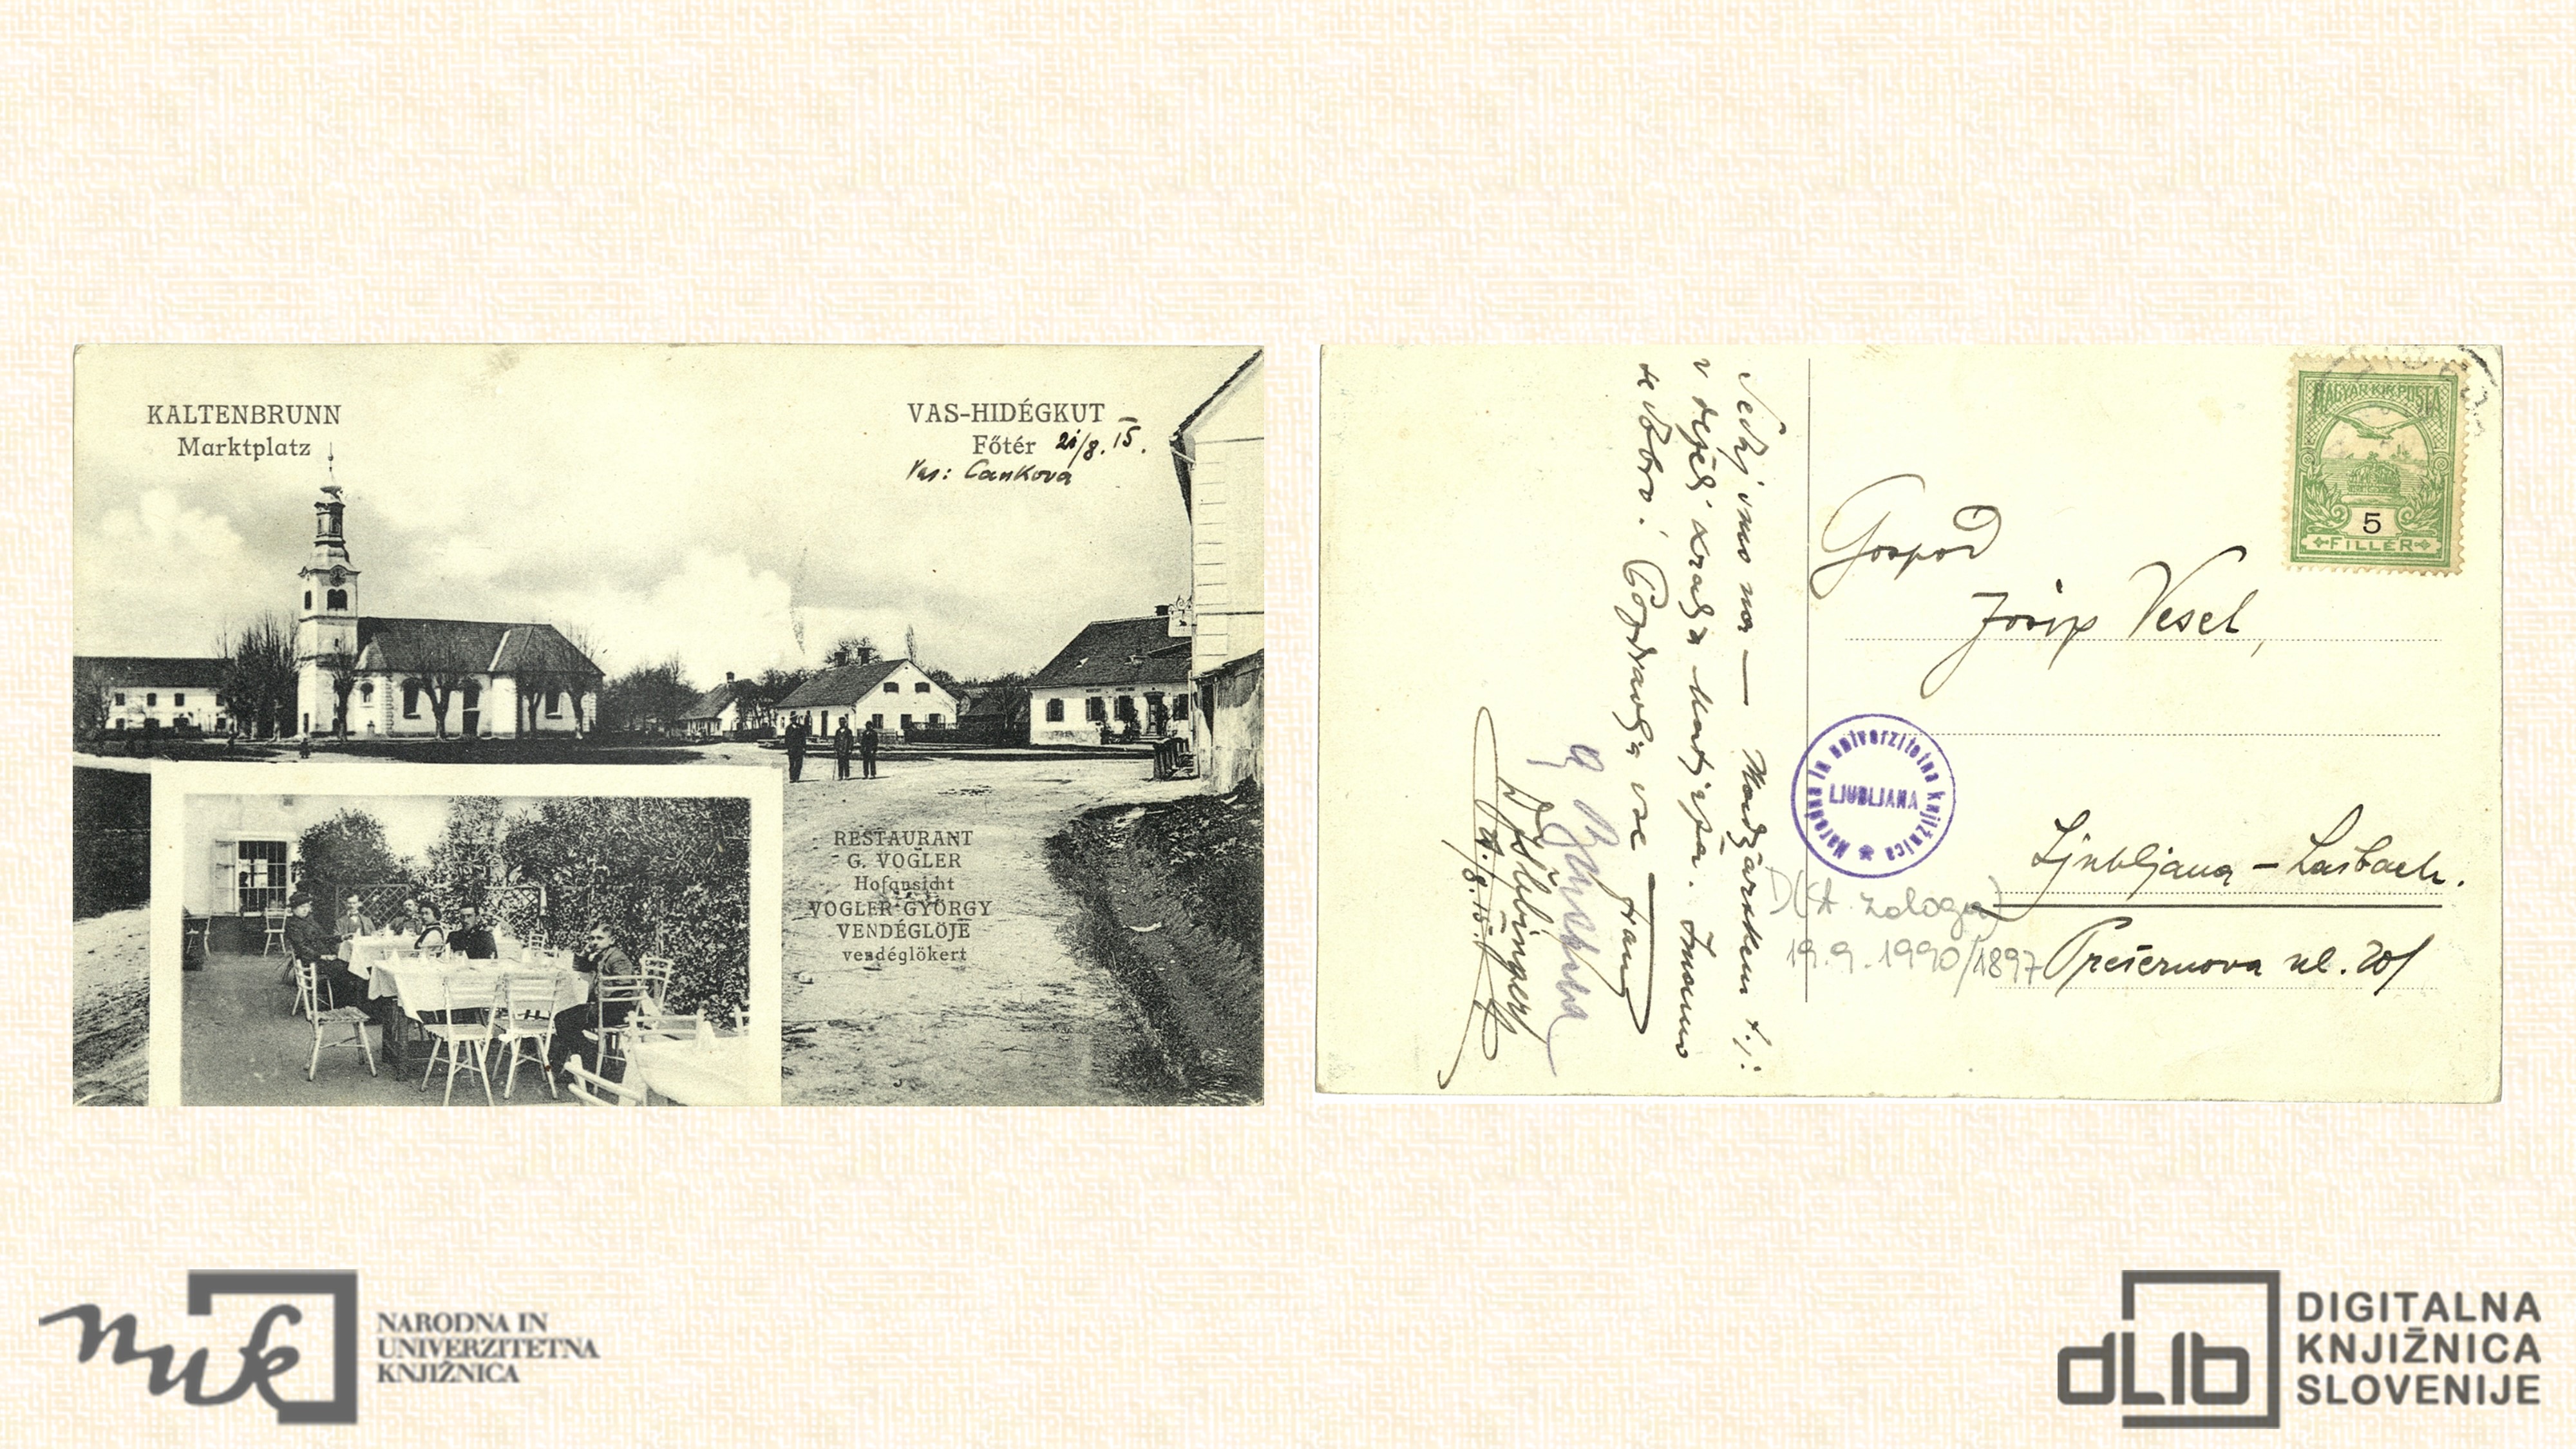 KALTENBRUNN
Marktplatz
VAS-HIDÉGKUT
Főtér 21/8. 15.
Vas: Cankova
RESTAURANT
G. VOGLER
Hofansicht
VOGLER GYÖRGY
VENDÉGLÖJE
vendéglökert
Sedaj smo na — Madžarskem t.j:
v deželi kralja Matjaža. Imamo
se dobro! Pozdravlja vse Franc
21./8. 15.
MAGYAR KIR. POSTA
5
FILLÉR
Gospod
Josip Vesel,
Narodna in univerzitetna knjižnica
LJUBLJANA
Ljubljana – Laibach.
D(St. zaloga)
19.9.1990/1897
Prešernova ul. 20/
nuk
NARODNA IN
UNIVERZITETNA
KNJIŽNICA
dLib
DIGITALNA
KNJIŽNICA
SLOVENIJE